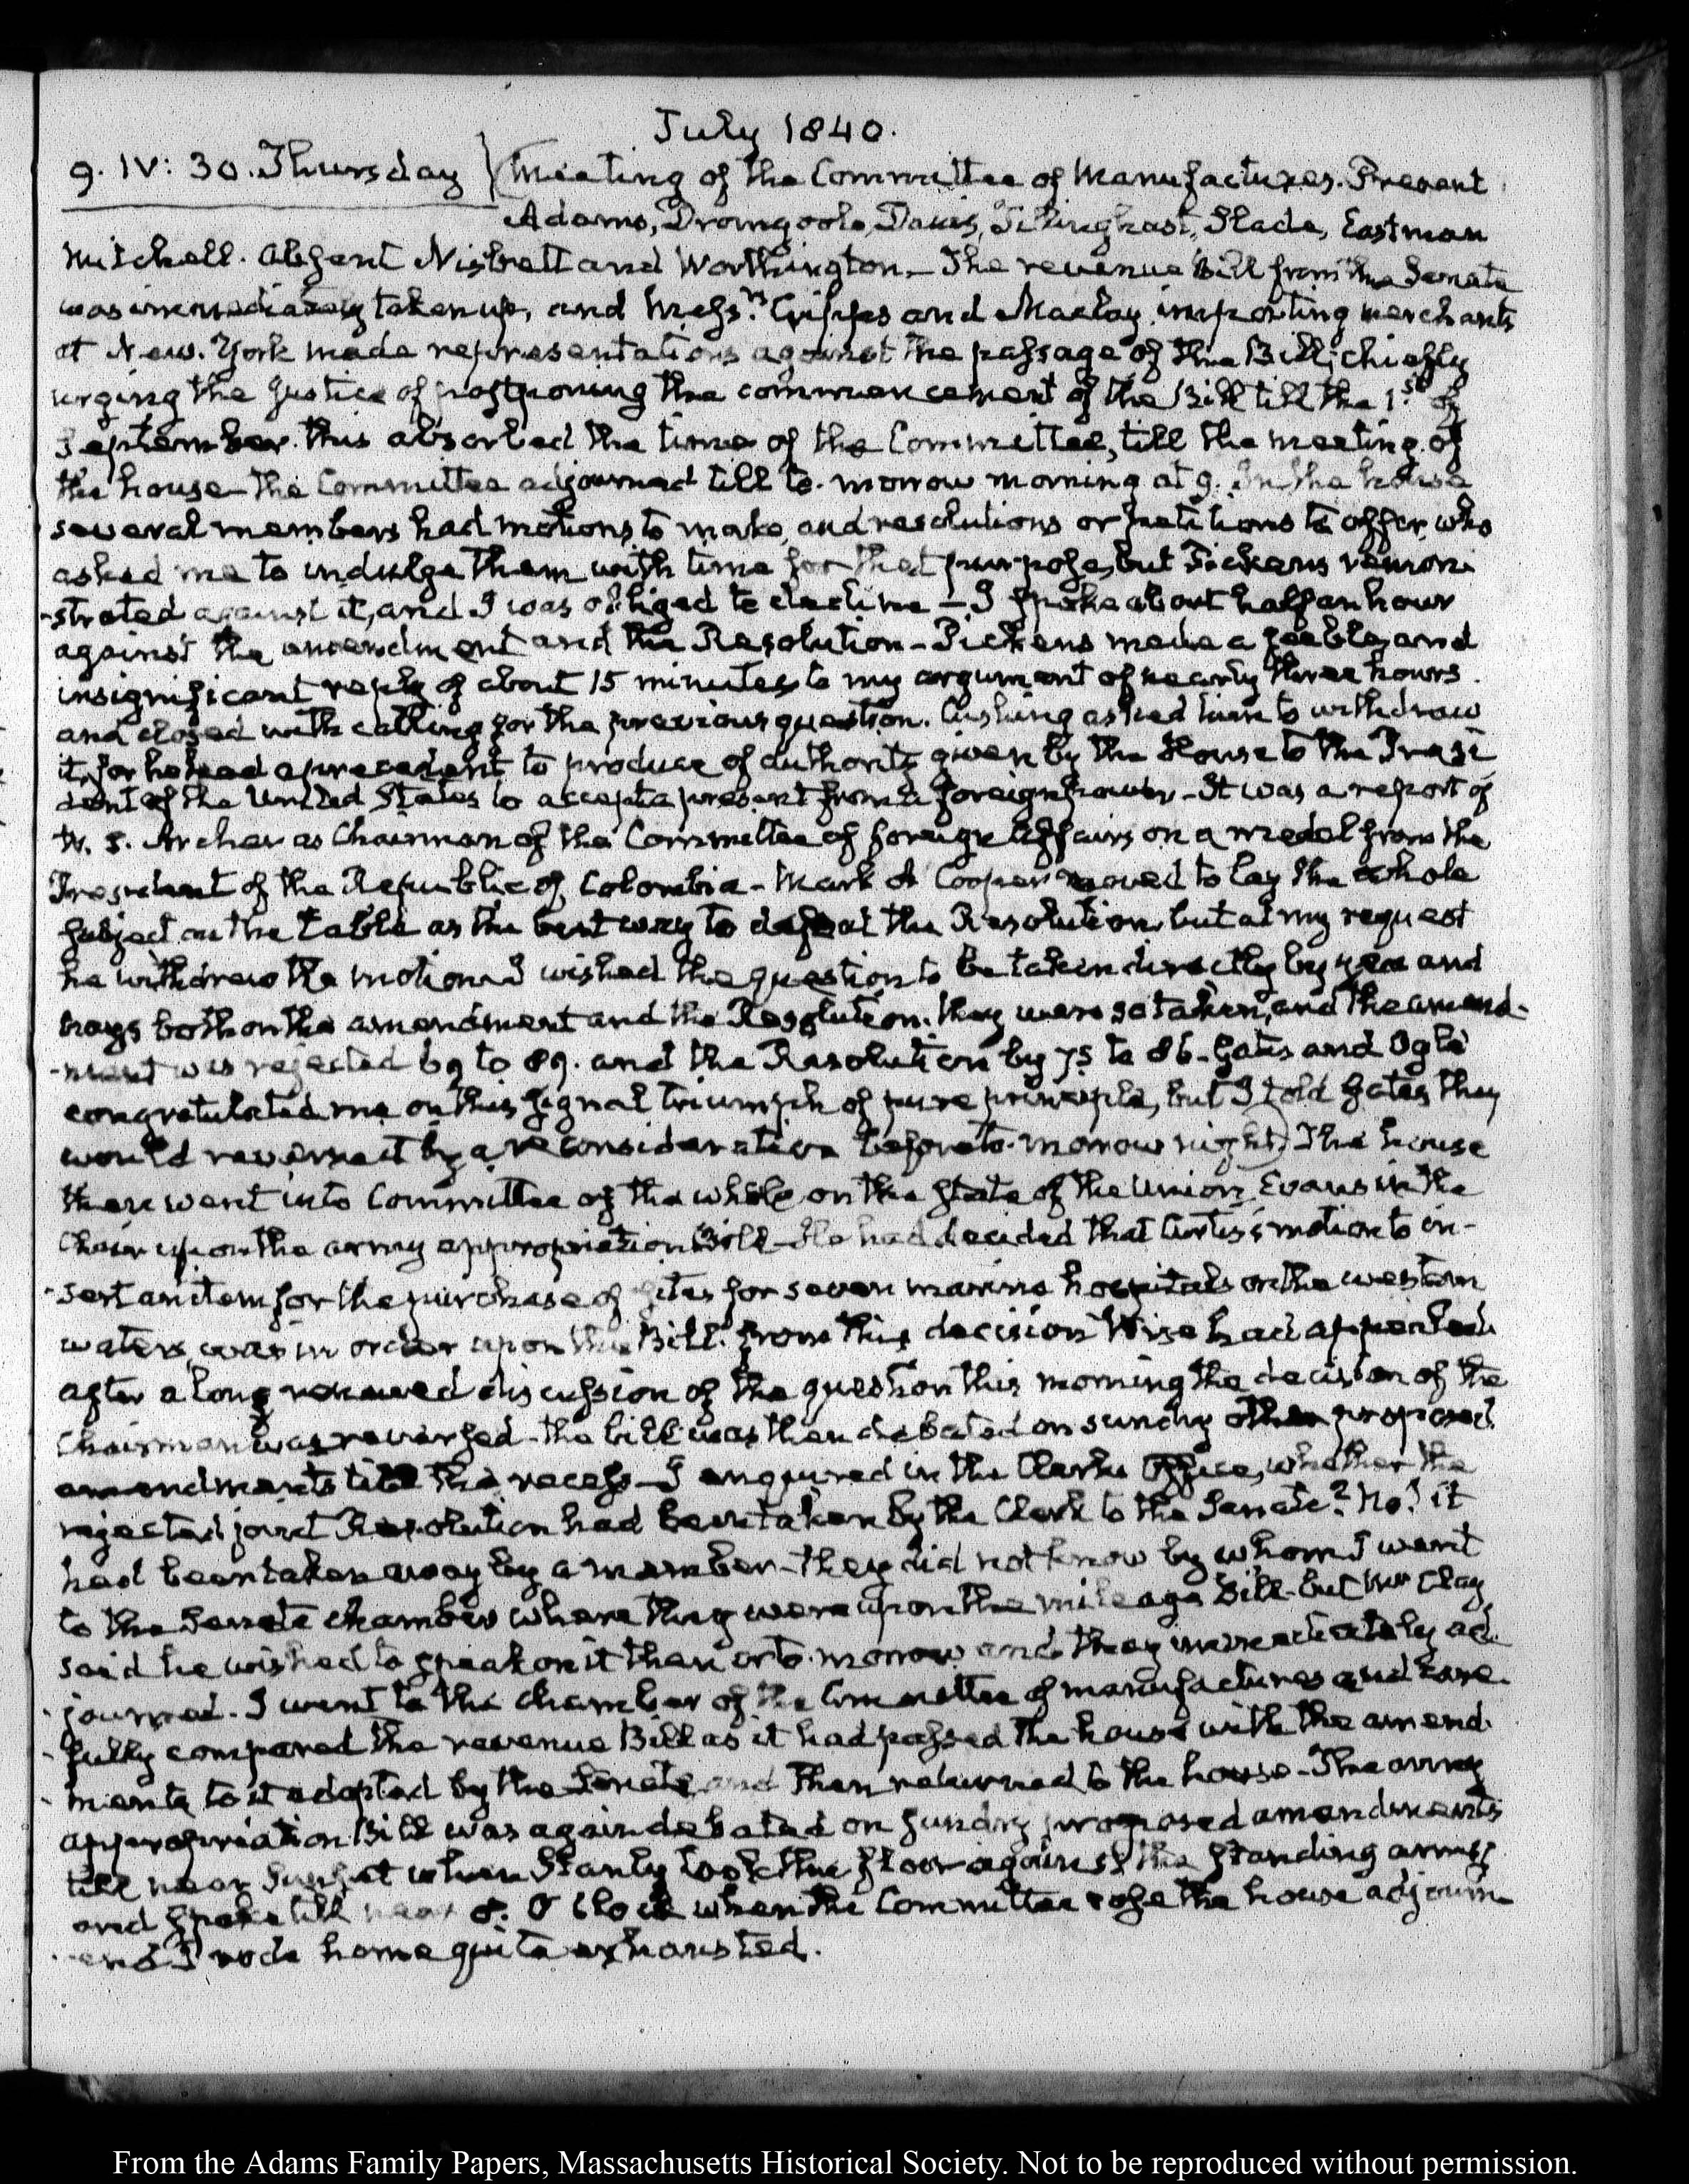 July 1840.
9. IV: 30. Thursday } Meeting of the Committee of Manufactures. Present
Adams, Dromgoole, Davis, Tillinghast, Slade, Eastman
Mitchell. Absent Nisbett and Worthington. The revenue Bill from the Senate
was immediately taken up, and Mess.rs and Maclay importing merchants
at New-York made representations against the passage of the Bill; chiefly
urging the justice of postponing the commencement of the Bill till the 1.st of
September. this absorbed the time of the Committee, till the meeting of
the house – the Committee adjourned till to-morrow morning at 9. In the house
several members had motions to make, and resolutions or petitions to offer, who
asked me to indulge them with time for that purpose, but Pickens remon-
-strated against it, and I was obliged to decline – I spoke about half an hour
against the amendment and the Resolution – Pickens made a feeble and
insignificant reply of about 15 minutes to my argument of nearly three hours.
and closed with calling for the previous question. Cushing asked him to withdraw
it, for he had a precedent to produce of authority given by the House to the Presi
dent of the United States to accept a present from a foreign power – It was a report of
W. S. Archer as Chairman of the Committee of foreign Affairs on a medal from the
President of the Republic of Colombia – Mark A Cooper moved to lay the whole
subject on the table as the best way to defeat the Resolution, but at my request
he withdrew the motion I wished the question to be taken directly by yeas and
nays both on the amendment and the Resolution. they were so taken, and the amend-
-ment was rejected 69 to 89. and the Resolution by 75 to 86 – Gates and Ogle
congratulated me on this signal triumph of pure principle, but I told Gates they
would reverse it by a reconsideration before to-morrow night) The house
then went into Committee of the whole on the state of the Union, Evans in the
Chair upon the army appropriation Bill – He had decided that Curtis's motion to in-
-sert an item for the purchase of sites for seven marine hospitals on the western
waters, was in order upon this Bill. from this decision Wise had appealed
after a long renewed discussion of the question this morning the decision of the
Chairman was reversed – the bill was then debated on sundry other proposed
amendments till the recess – I enquired in the Clerks Office, whether the
rejected joint Resolution had been taken by the Clerk to the Senate? No! it
had been taken away by a member – they did not know by whom I went
to the Senate chamber where they were upon the mileage Bill – but Mr Clay
said he wished to speak on it then or to-morrow and they immediately ad-
-journed. I went to the chamber of the Committee of manufactures and care-
-fully compared the revenue Bill as it had passed the house with the amend-
-ments to it adopted by the Senate and then returned to the house – The army
appropriation Bill was again debated on sundry proposed amendments
till near Sunset when Stanly took the floor against the standing army
and spoke till near 8. O'Clock when the Committee rose the house adjourn-
and I rode home quite exhausted.
From the Adams Family Papers, Massachusetts Historical Society. Not to be reproduced without permission.